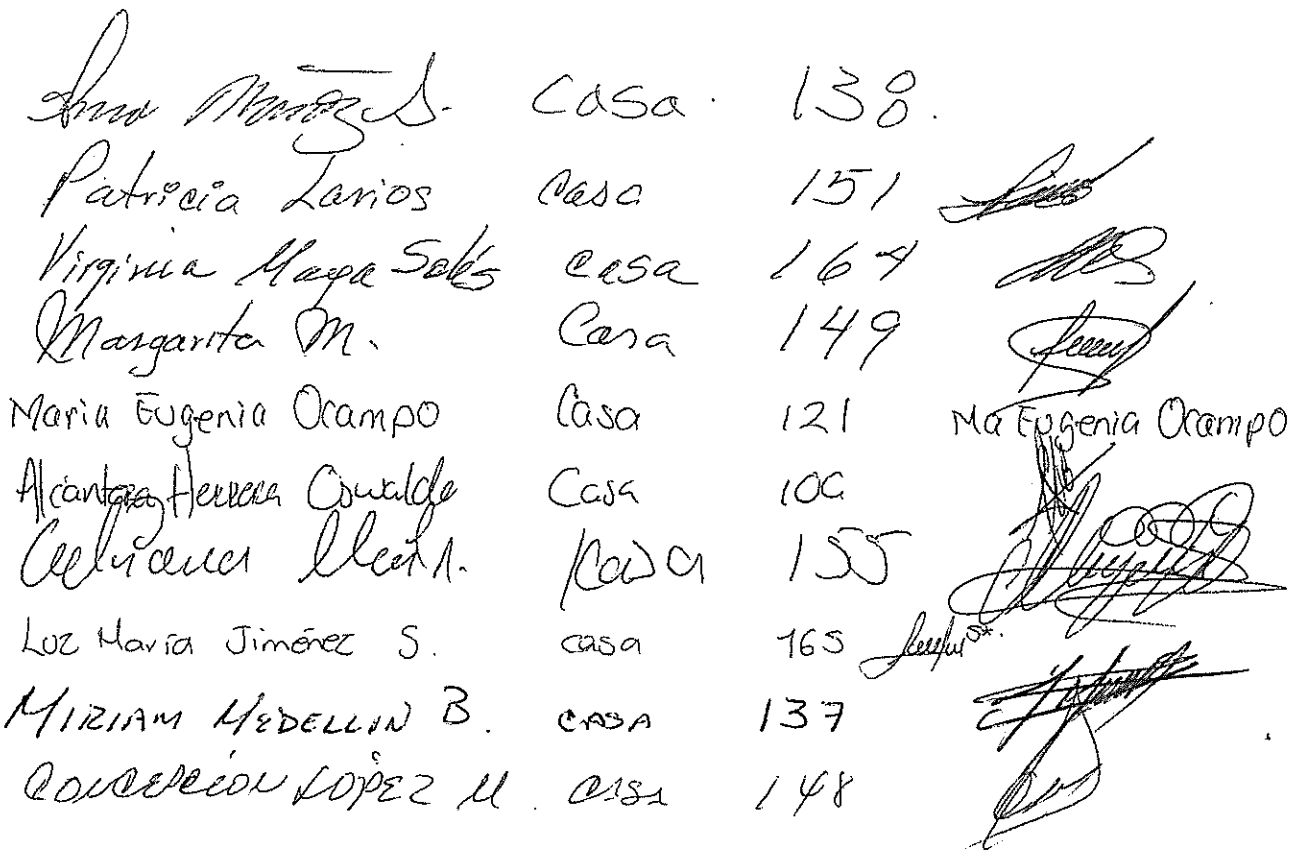 Ana Muñoz S. Casa. 138.
Patricia Larios Casa 151
Virginia Maya Solís casa 164
Margarita M. Casa 149
Maria Eugenia Ocampo Casa 121 Ma Eugenia Ocampo
Alcantara Herrera Oswaldo Casa 100
Adriana Casa 155
Luz María Jiménez S. casa 165
MIRIAM MEDELLIN B. CASA 137
CONCEPCIÓN LOPEZ M. CASA 148